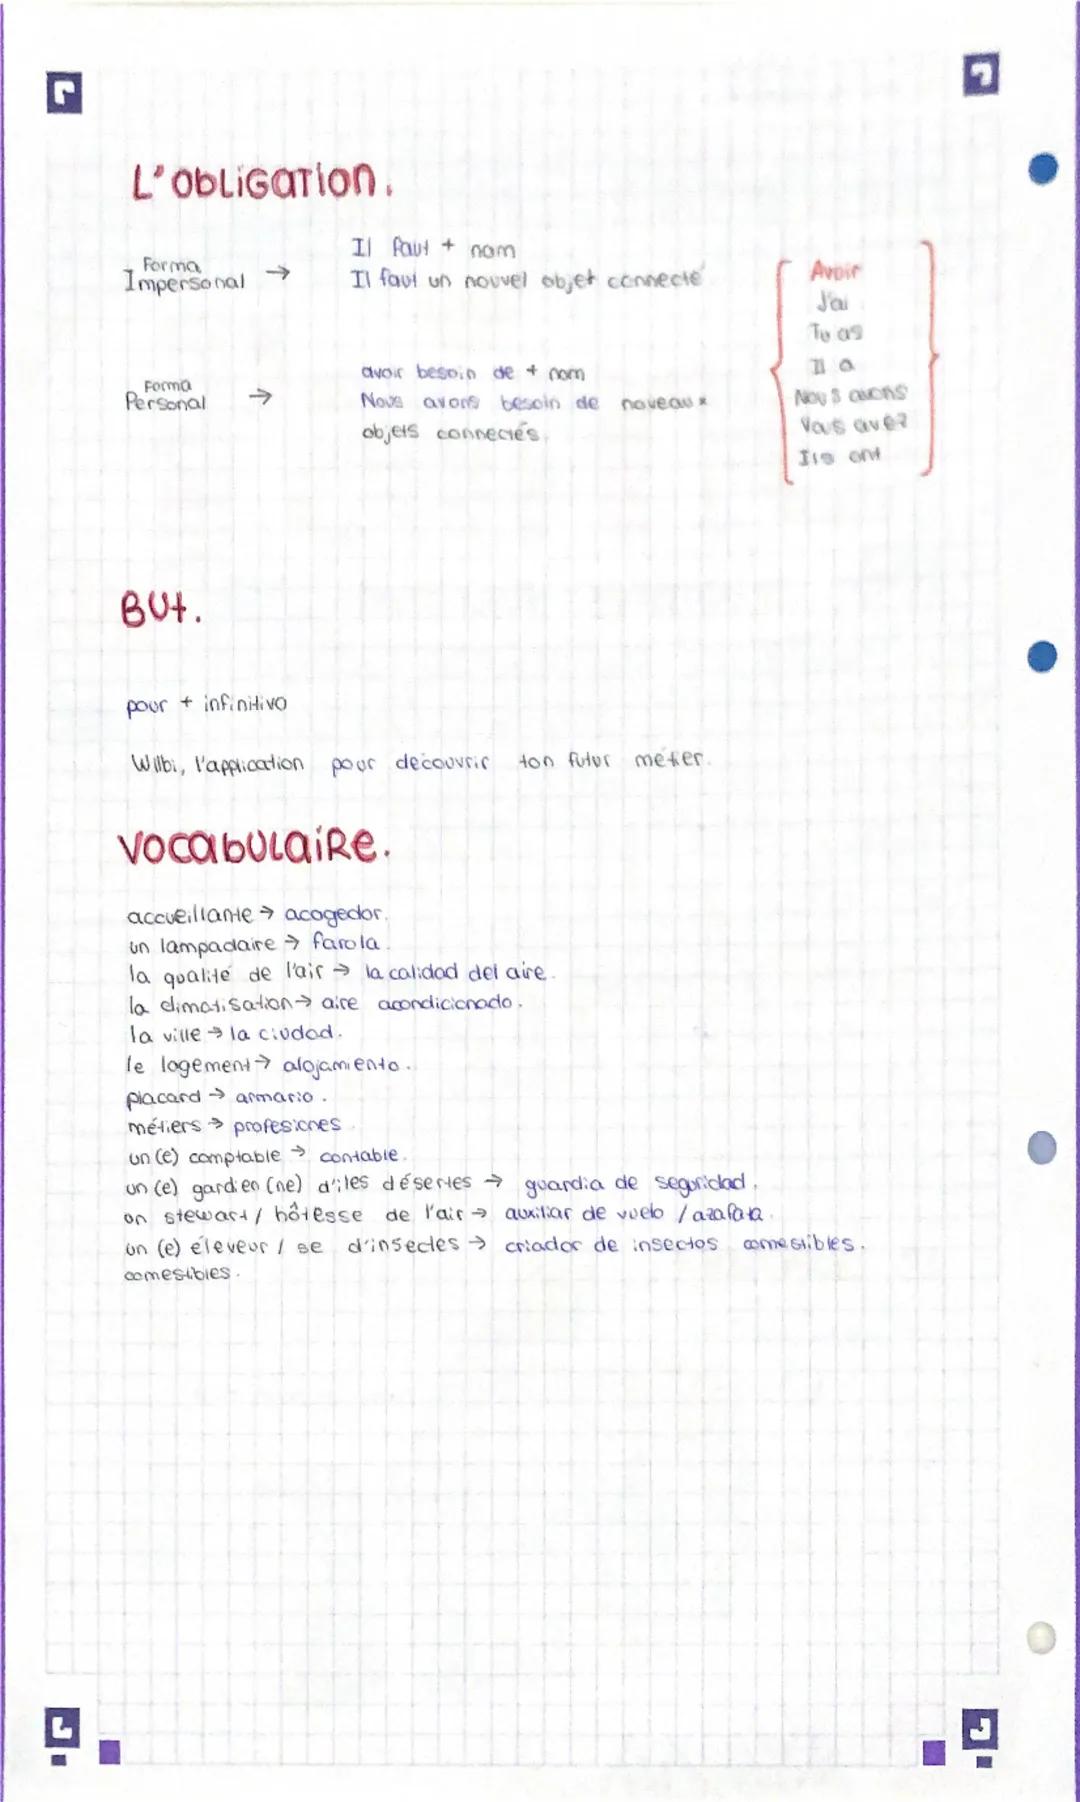 L'obligation.
Forma
Impersonal →
Il faut + nom
Il faut un nouvel objet connecté
Forma
Personal →
avoir besoin de + nom
Nous avons besoin de noveaux
objets connectés.
Avoir
J'ai
Tu as
Il a
Nous avons
Vous avez
Ils ont
But.
pour + infinitivo
Wilbi, l'application pour découvrir ton futur métier.
Vocabulaire.
accueillante → acogedor.
un lampadaire → farola.
la qualité de l'air → la calidad del aire.
la climatisation → aire acondicionado.
la ville → la ciudad.
le logement → alojamiento.
placard → armario.
métiers → profesiones.
un (e) comptable → contable.
un (e) gardien (ne) d'iles désertes → guardia de seguridad.
un stewart / hôtesse de l'air → auxiliar de vuelo / azafata.
un (e) éleveur / se d'insectes → criador de insectos comestibles.
comestibles.